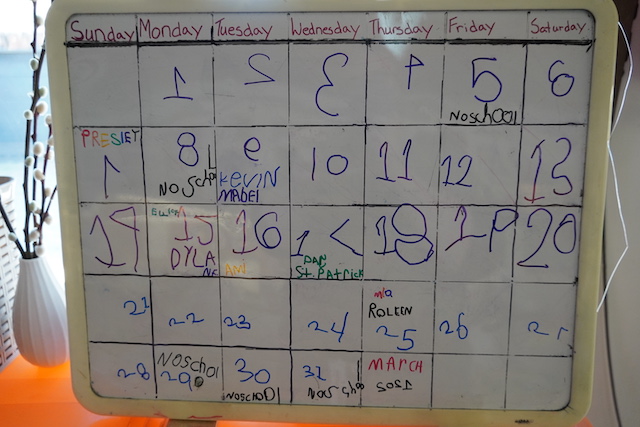 Sunday Monday Tuesday Wednesday Thursday Friday Saturday
1 2 3 4 5 6
NoschOOl
PRESLEY
7 8 9 10 11 12 13
No Scho l
KEVIN
MABEl
14 15 16 17 18 19 20
DYLA
AMI
DAY
St. PAtRick
m/a
ROLEEN
21 22 23 24 25 26 27
28 29 30 31
NOSChOl
NOSCHOOl
NoScho
MARCH
2021